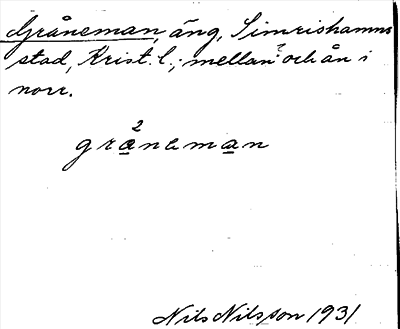 Gråneman, äng, Simrishamns
stad, Krist. l.; mellan ? och ån i
norr.
2
gra̲nəma̲n
Nils Nilsson 1931